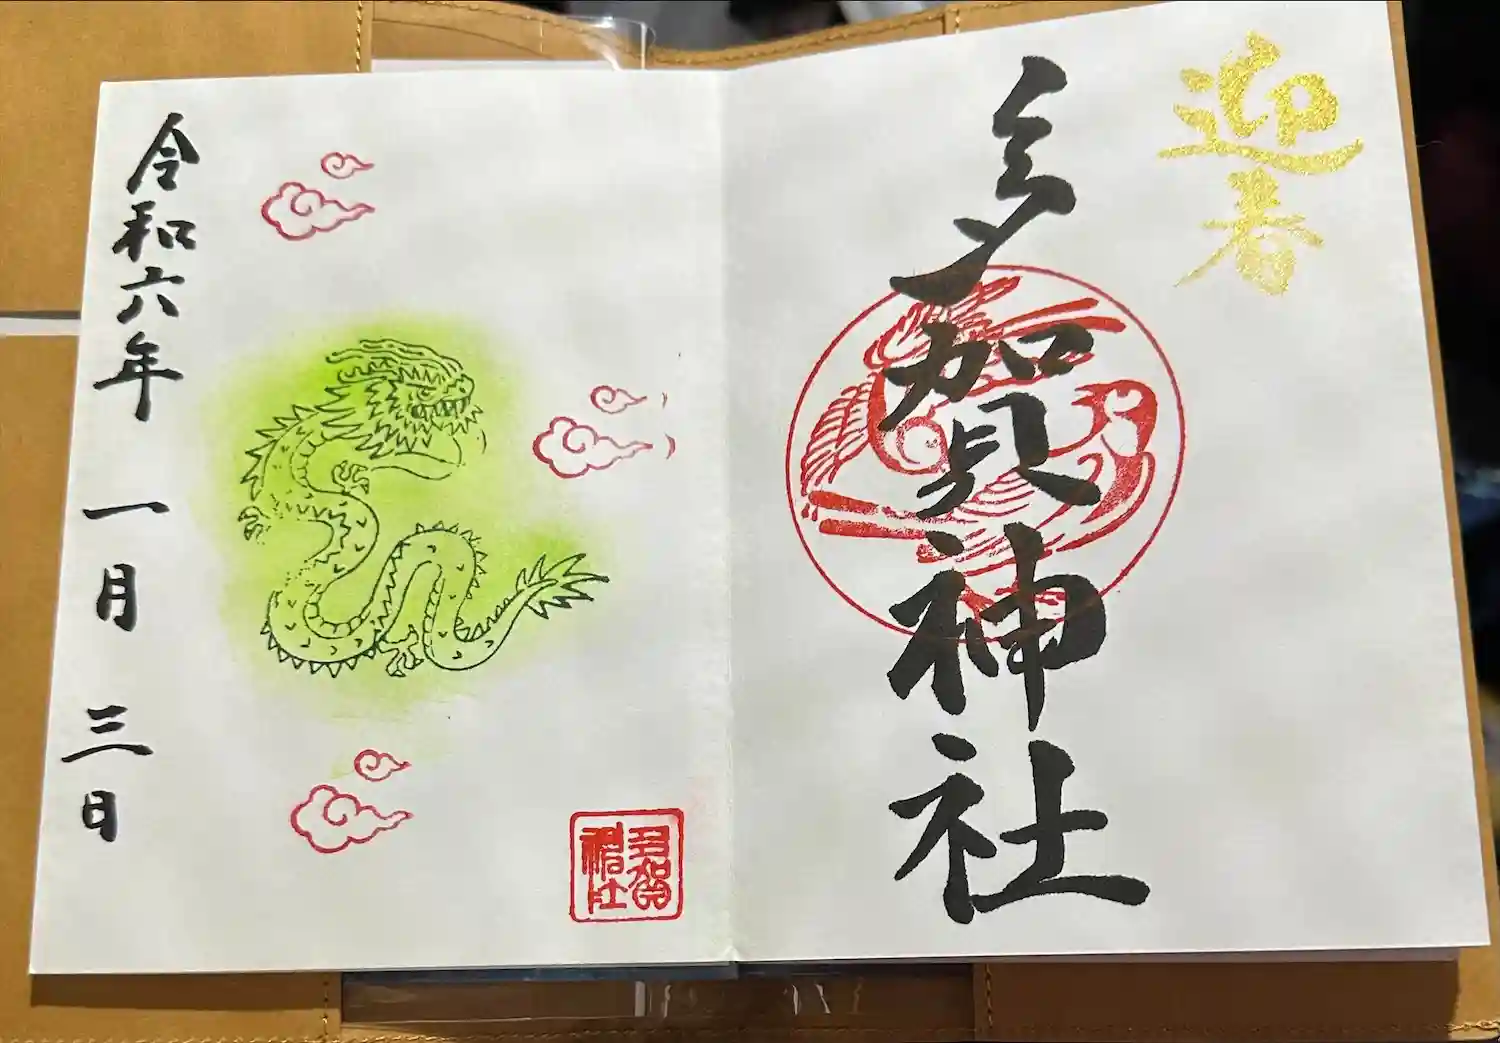 迎春
多賀神社
令和六年 一月 三日
多賀
神社